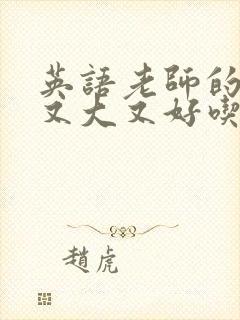 英語老師的
又大又好喫
趙虎